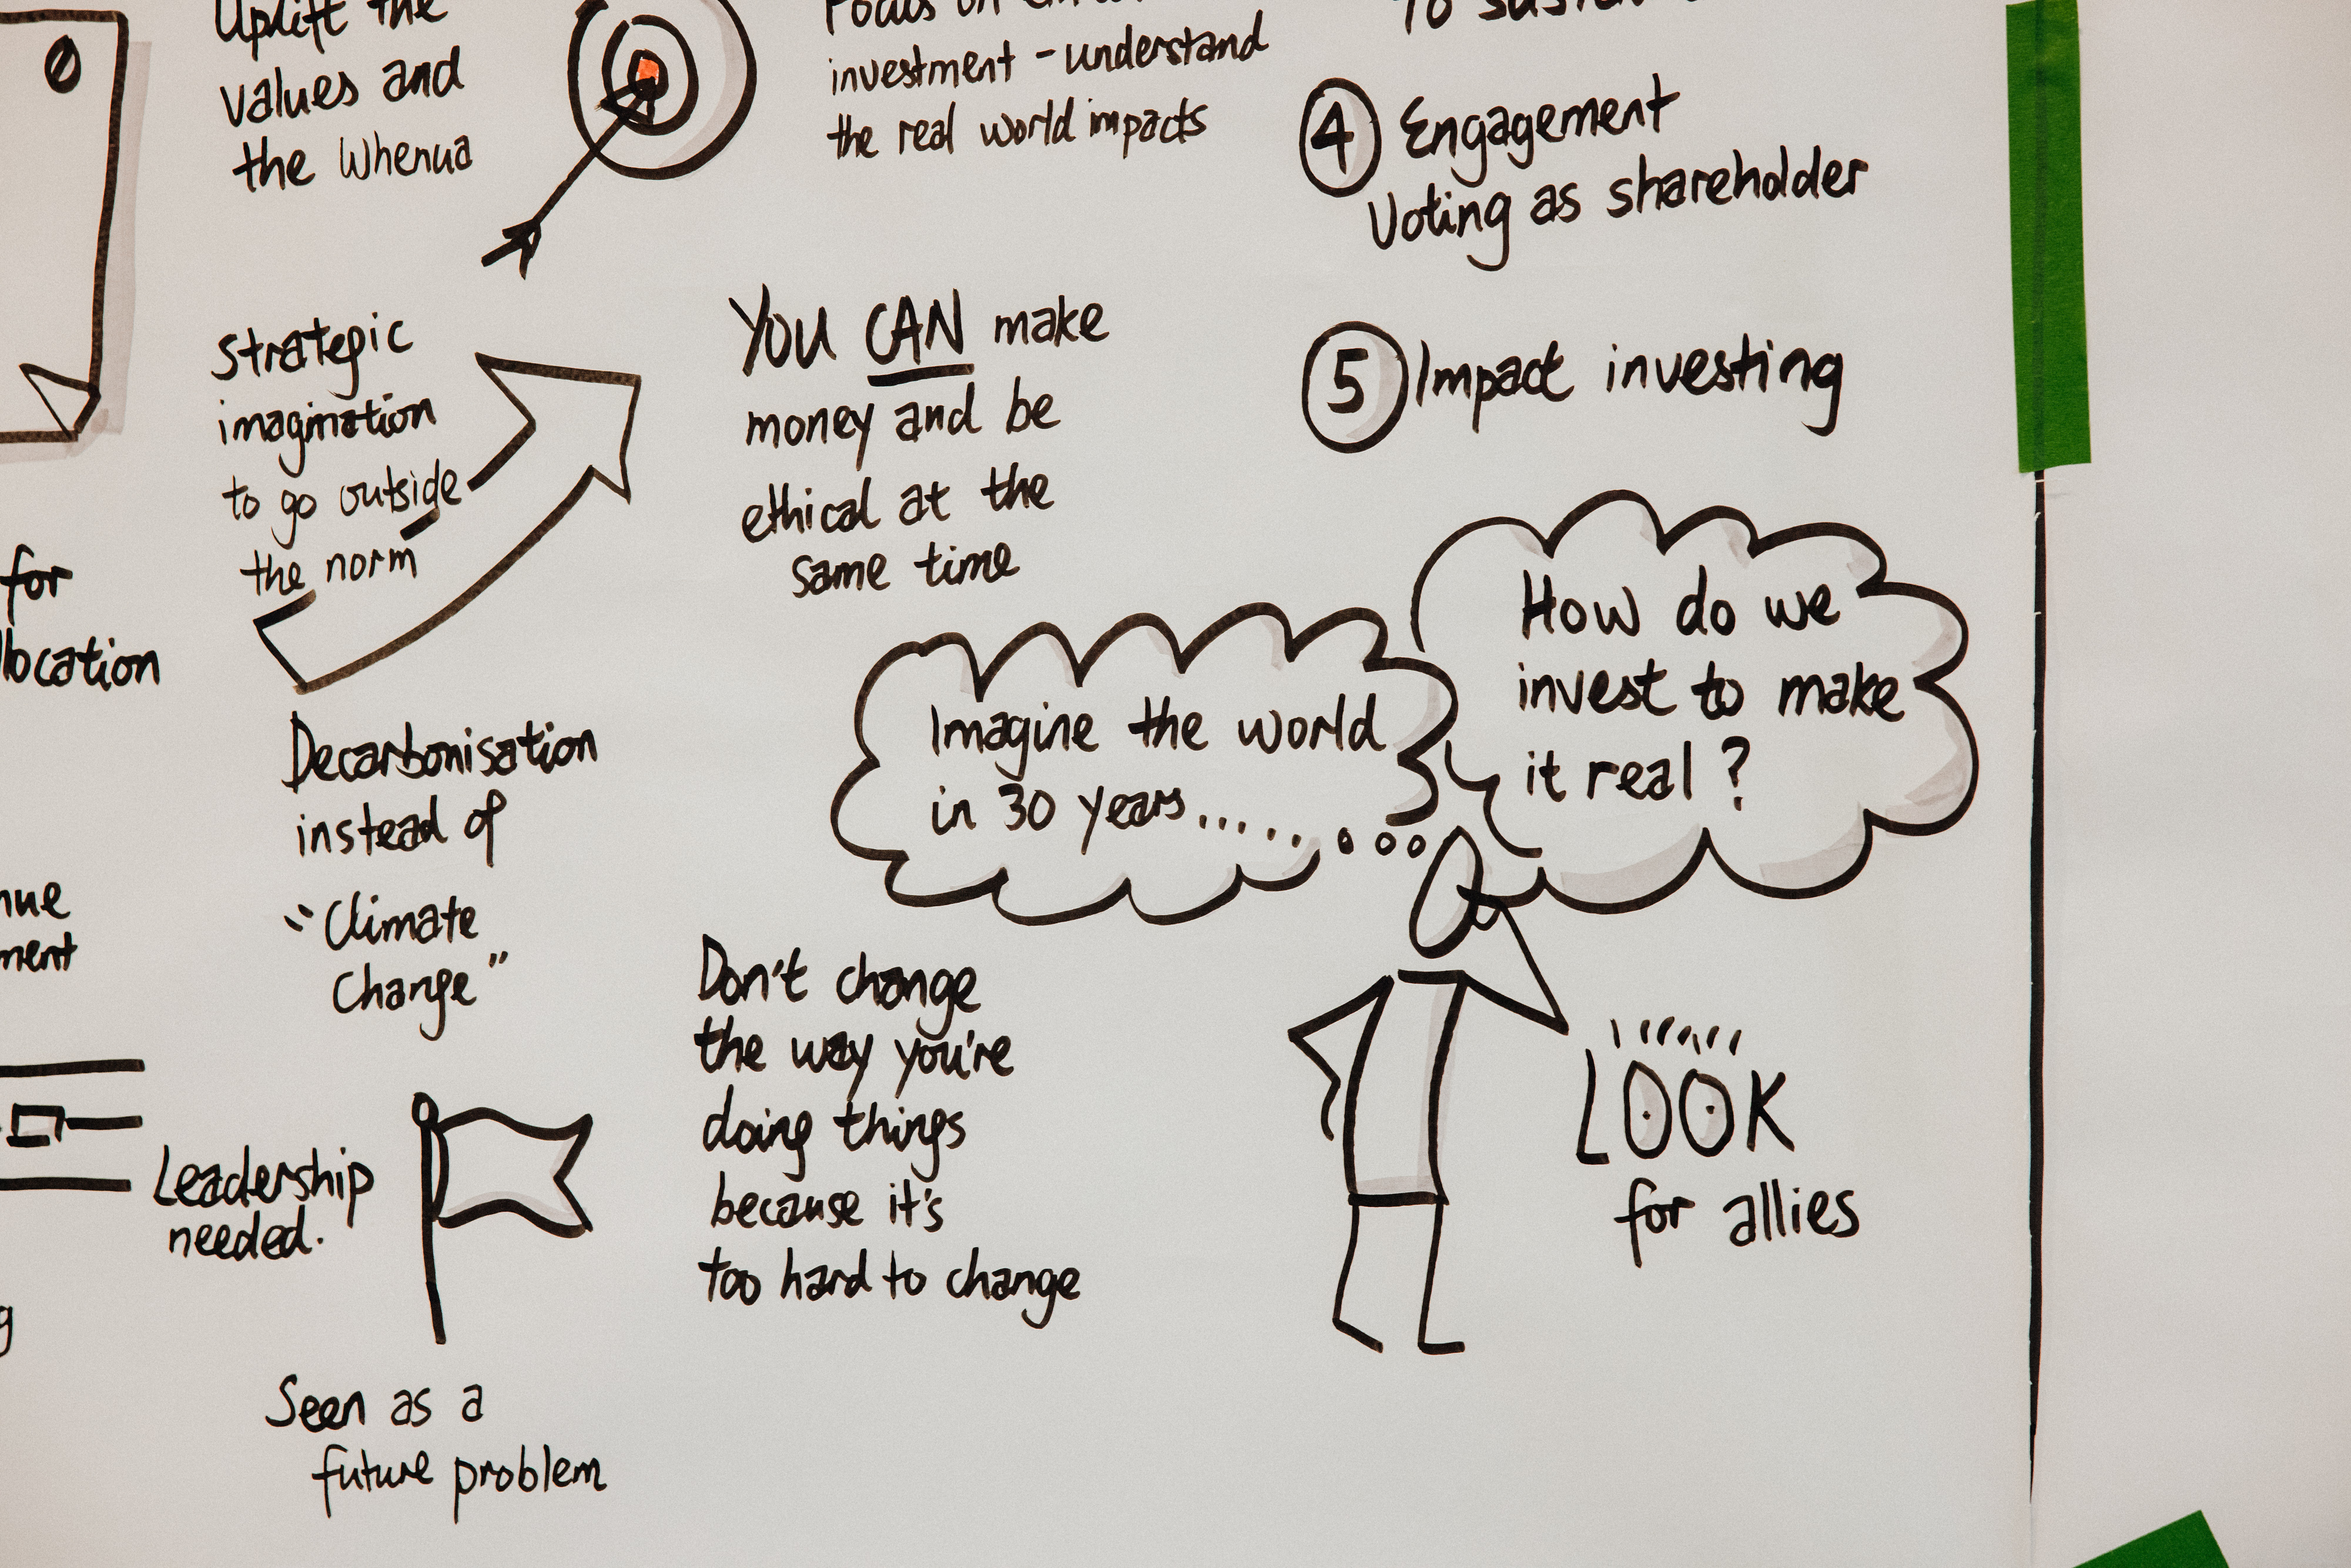 Uplift the
values and
the Whenua
investment - understand
the real world impacts
4 Engagement
Voting as shareholder
Strategic
imagination
to go outside
the norm
YOU CAN make
money and be
ethical at the
same time
5 Impact investing
for
Imagine the world
in 30 years......
How do we
invest to make
it real?
Decarbonisation
instead of
"Climate
Change"
Leadership
needed.
Don't change
the way you're
doing things
because it's
too hard to change
LOOK
for allies
Seen as a
future problem